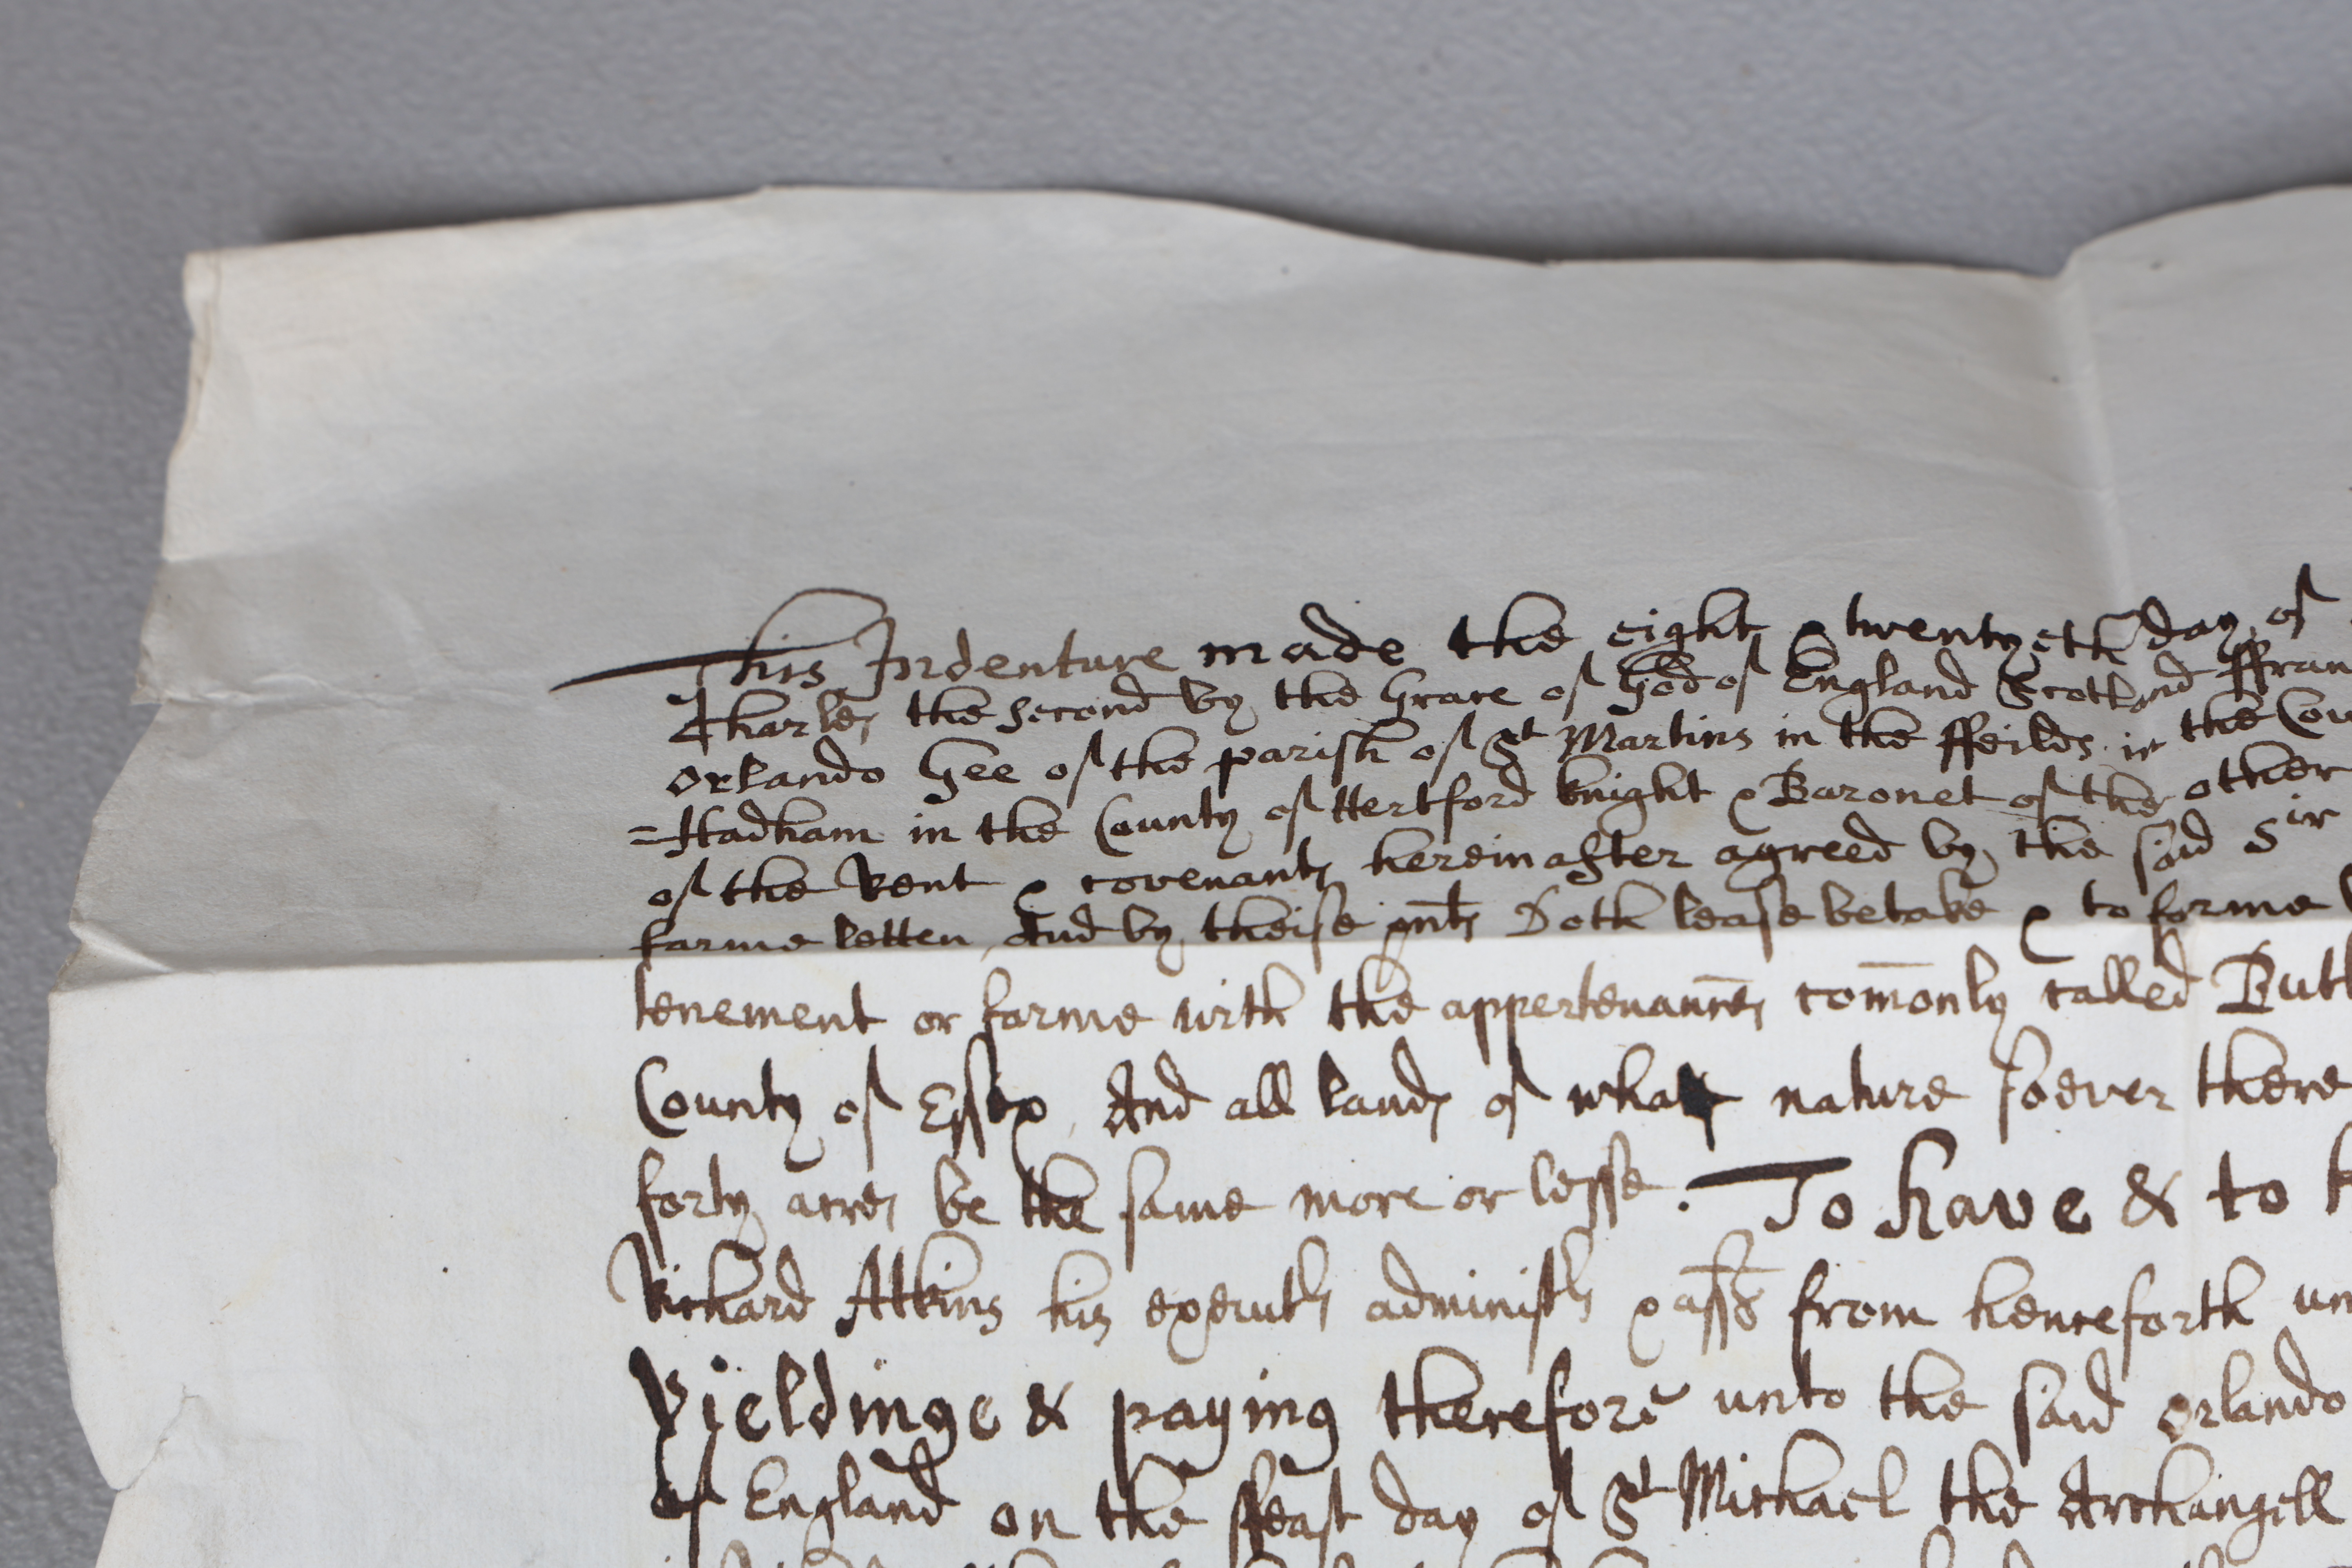 This Indenture made the eight & twentyeth day of
Charles the Second by the Grace of God of England Scotland ffran
Orlando Gee of the parish of St Martins in the ffeilds in the Cou
=Hadham in the County of Hertford knight & Baronet of the other
of the Rent & covenants hereinafter agreed by the said Sir
farme letten And by theise pnts Doth lease betake & to farme
tenement or farme with the appertenances comonly called Butt
County of Essex And all lands of what nature soever there
forty acres be the same more or lesse. To have & to h
Richard Atkins his executs administs & ass from henceforth un
Yieldinge & paying therefore unto the said Orlando
of England on the ffeast day of St Michael the Archangell